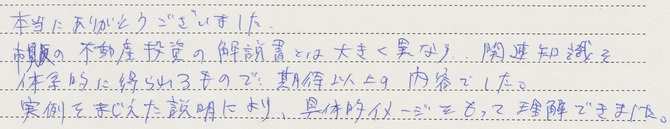 本当にありがとうございました.
市販の不動産投資の解説書とは大きく異なり 関連知識を
体系的に得られるもので、期待以上の内容でした。
実例をまじえた説明により、具体的イメージをもって理解できました。